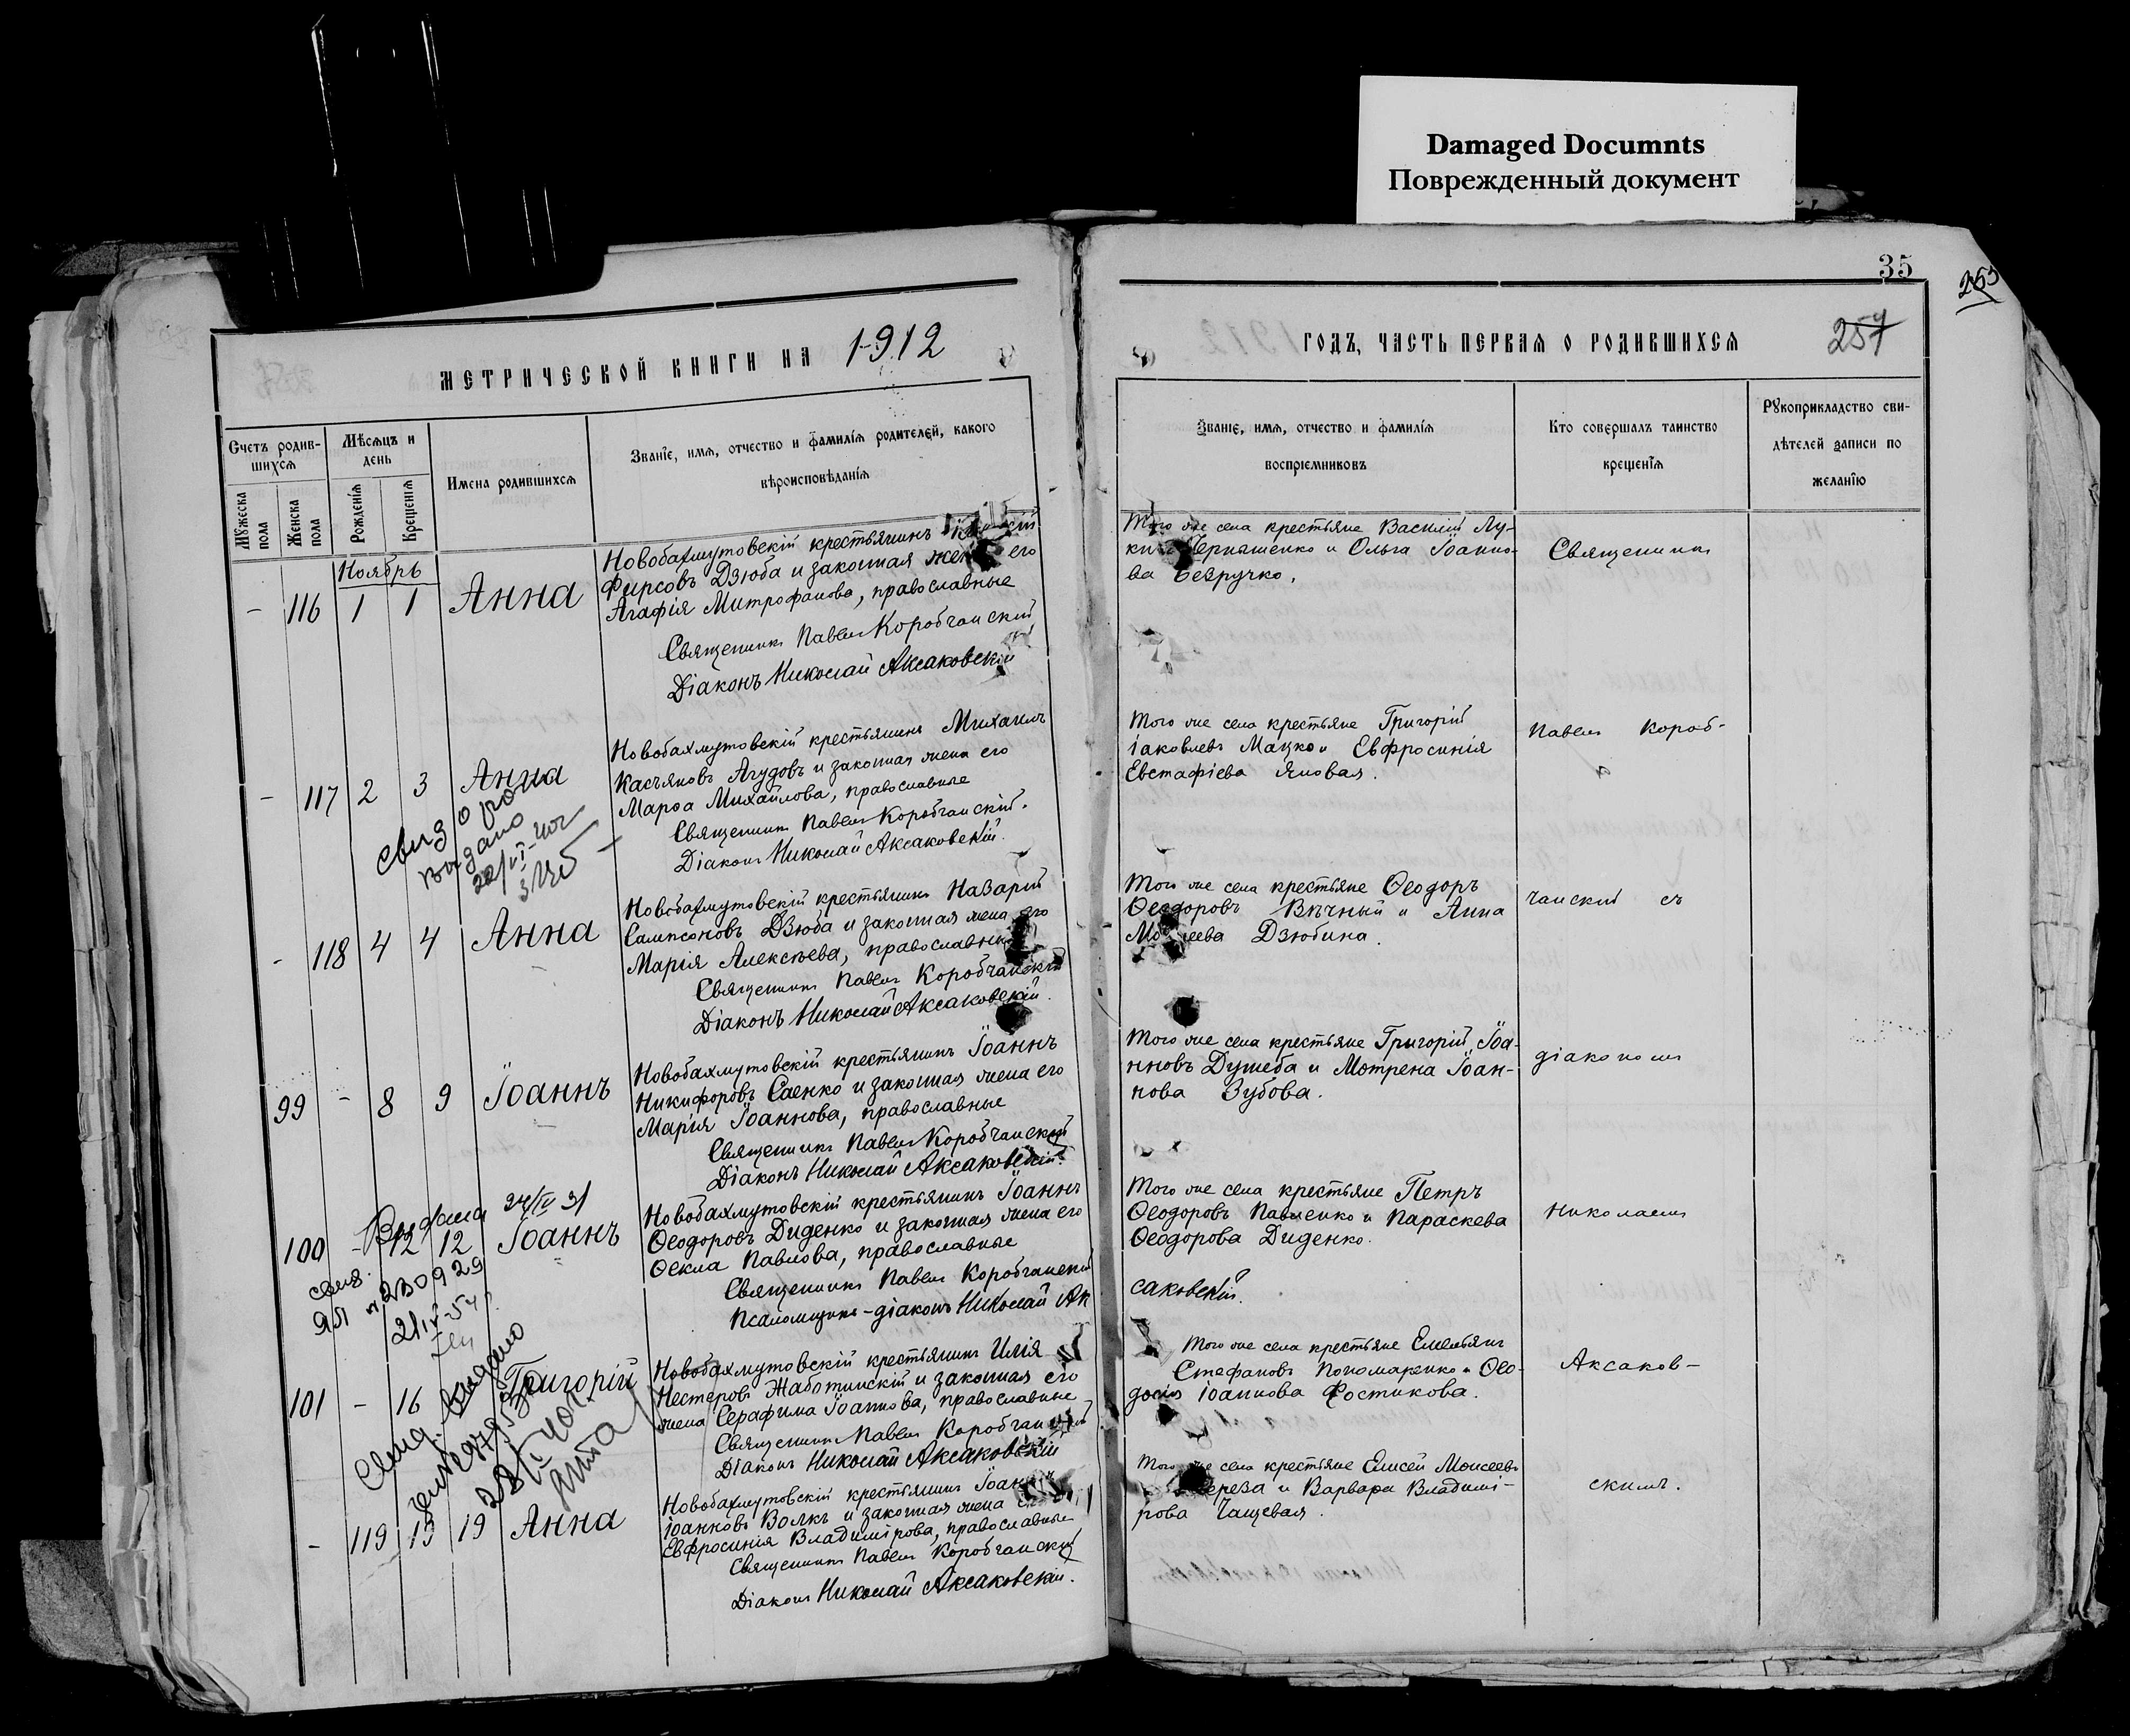 Damaged Documnts
Поврежденный документ
35
253
МЕТРИЧЕСКОЙ КНИГИ НА 1912
Счетъ родив-
шихся
Мѣсяцъ и
день
Имена родившихся
Званіе, имя, отчество и фамилія родителей, какого
вѣроисповѣданія
Мужеска
пола
Женска
пола
Рожденія
Крещенія
Ноябрь
- 116 1 1 Анна
Новобахмутовскій крестьянинъ
Фирсовъ Дзюба и законная жена его
Агафія Митрофанова, православные
Священникъ Павелъ Коробчанскій
Діаконъ Николай Аксаковскій
- 117 2 3 Анна
Новобахмутовскій крестьянинъ Михаилъ
Касьяновъ Агудовъ и законная жена его
Марѳа Михайлова, православные
Священникъ Павелъ Коробчанскій.
Діаконъ Николай Аксаковскій.
свид о рож
выдано
20/VI-40г
- 118 4 4 Анна
Новобахмутовскій крестьянинъ Назарій
Сампсоновъ Дзюба и законная жена его
Марія Алексѣева, православные
Священникъ Павелъ Коробчанскій
Діаконъ Николай Аксаковскій.
99 - 8 9 Іоаннъ
Новобахмутовскій крестьянинъ Іоаннъ
Никифоровъ Саенко и законная жена его
Марія Іоаннова, православные
Священникъ Павелъ Коробчанскій
Діаконъ Николай Аксаковскій.
100 - 12 12 Іоаннъ
Новобахмутовскій крестьянинъ Іоаннъ
Ѳеодоровъ Диденко и законная жена его
Ѳекла Павлова, православные
Священникъ Павелъ Коробчанскій
Псаломщикъ-діаконъ Николай Ак
саковскій.
101 - 16 Григорій
Новобахмутовскій крестьянинъ Илія
Нестеровъ Жаботинскій и законная его
жена Серафима Іоаннова, православные
Священникъ Павелъ Коробчанскій
Діаконъ Николай Аксаковскій
- 119 19 Анна
Новобахмутовскій крестьянинъ Іоаннъ
Іоанновъ Волкъ и законная жена
Евфросинія Владимірова, православные
Священникъ Павелъ Коробчанскій
Діаконъ Николай Аксаковскій.
ГОДЪ, ЧАСТЬ ПЕРВАЯ О РОДИВШИХСЯ
Званіе, имя, отчество и фамилія
воспріемниковъ
Кто совершалъ таинство
крещенія
Рукоприкладство сви-
дѣтелей записи по
желанію
Того же села крестьяне Василій Лу-
Черняшенко и Ольга Іоанно-
ва Безручко.
Того же села крестьяне Григорій
Іаковлевъ Мацко и Евфросинія
Евстафіева Яновая.
Того же села крестьяне Ѳеодоръ
Ѳеодоровъ Вѣчный и Анна
Дзюбина.
Того же села крестьяне Григорій Іоа-
нновъ Душеба и Мотрена Іоан-
нова Зубова.
Того же села крестьяне Петръ
Ѳеодоровъ Павленко и Параскева
Ѳеодорова Диденко.
Того же села крестьяне Емельянъ
Стефановъ Пономаренко и Ѳео-
досія Іоаннова Фостикова.
Того же села крестьяне Елисей Моисеевъ
и Варвара Владимі-
рова Чащевая.
Священникъ
Павелъ Короб-
чанскій съ
діакономъ
Николаемъ
Аксаков-
скимъ.